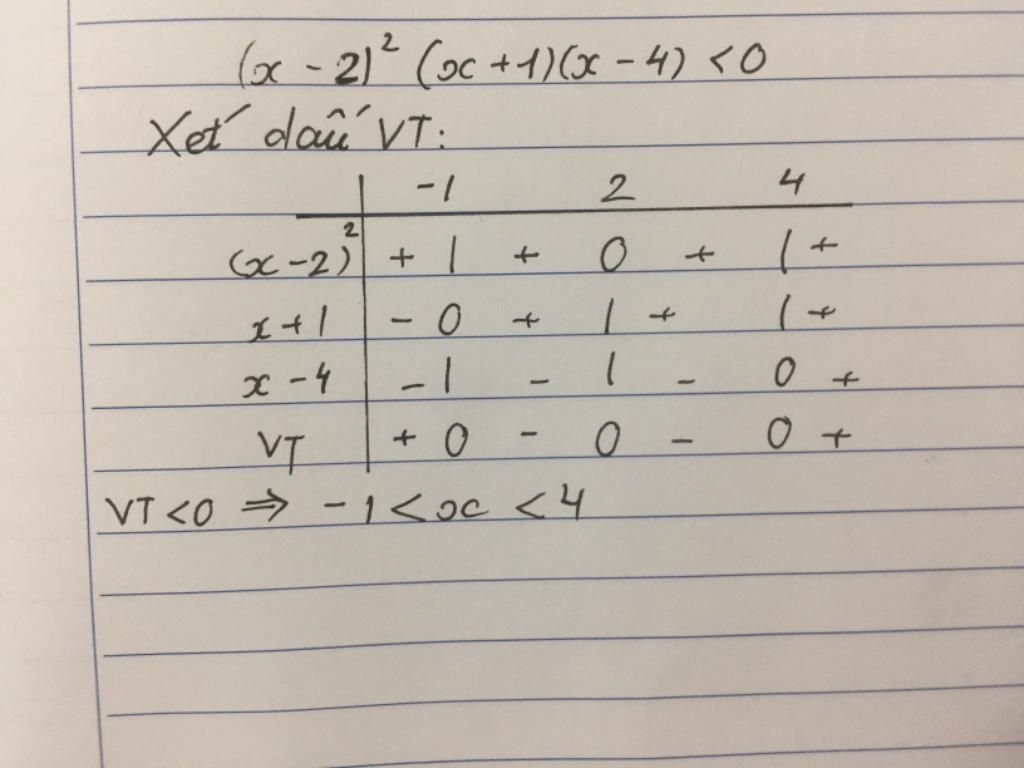 (x - 2)² (x + 1)(x - 4) < 0
Xét dấu VT:
-1 2 4
(x - 2)² + | + 0 + | +
x + 1 - 0 + | + | +
x - 4 - | - | - 0 +
VT + 0 - 0 - 0 +
VT < 0 ⇒ -1 < x < 4